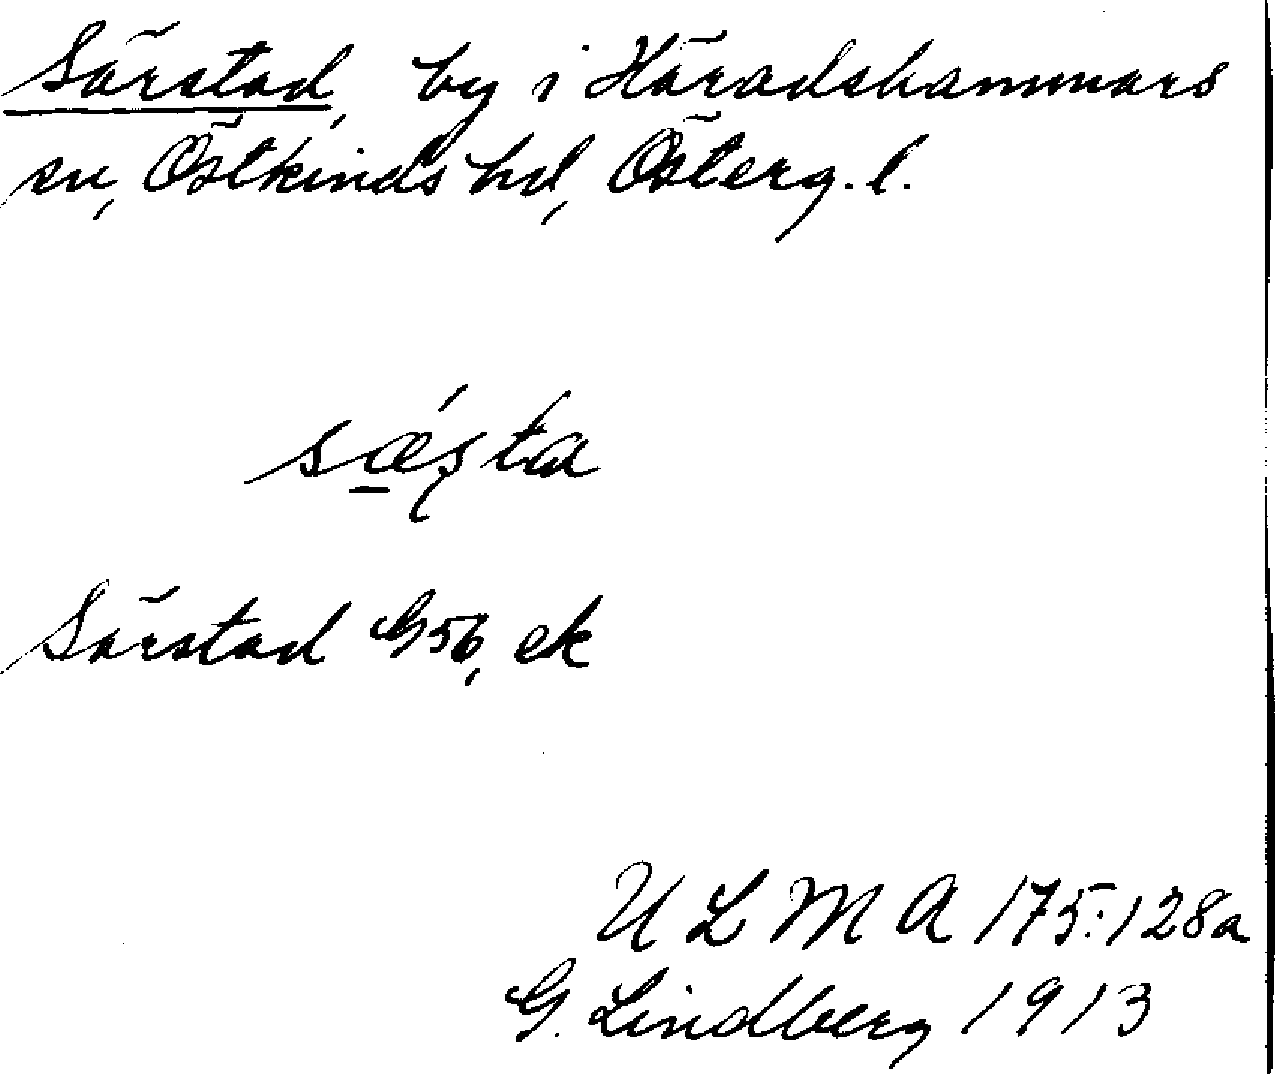 Särstad, by i Häradshammars
sn, Östkinds hd, Österg. l.
Särstad G56, ek
U L M A 175:128a
G. Lindberg 1913